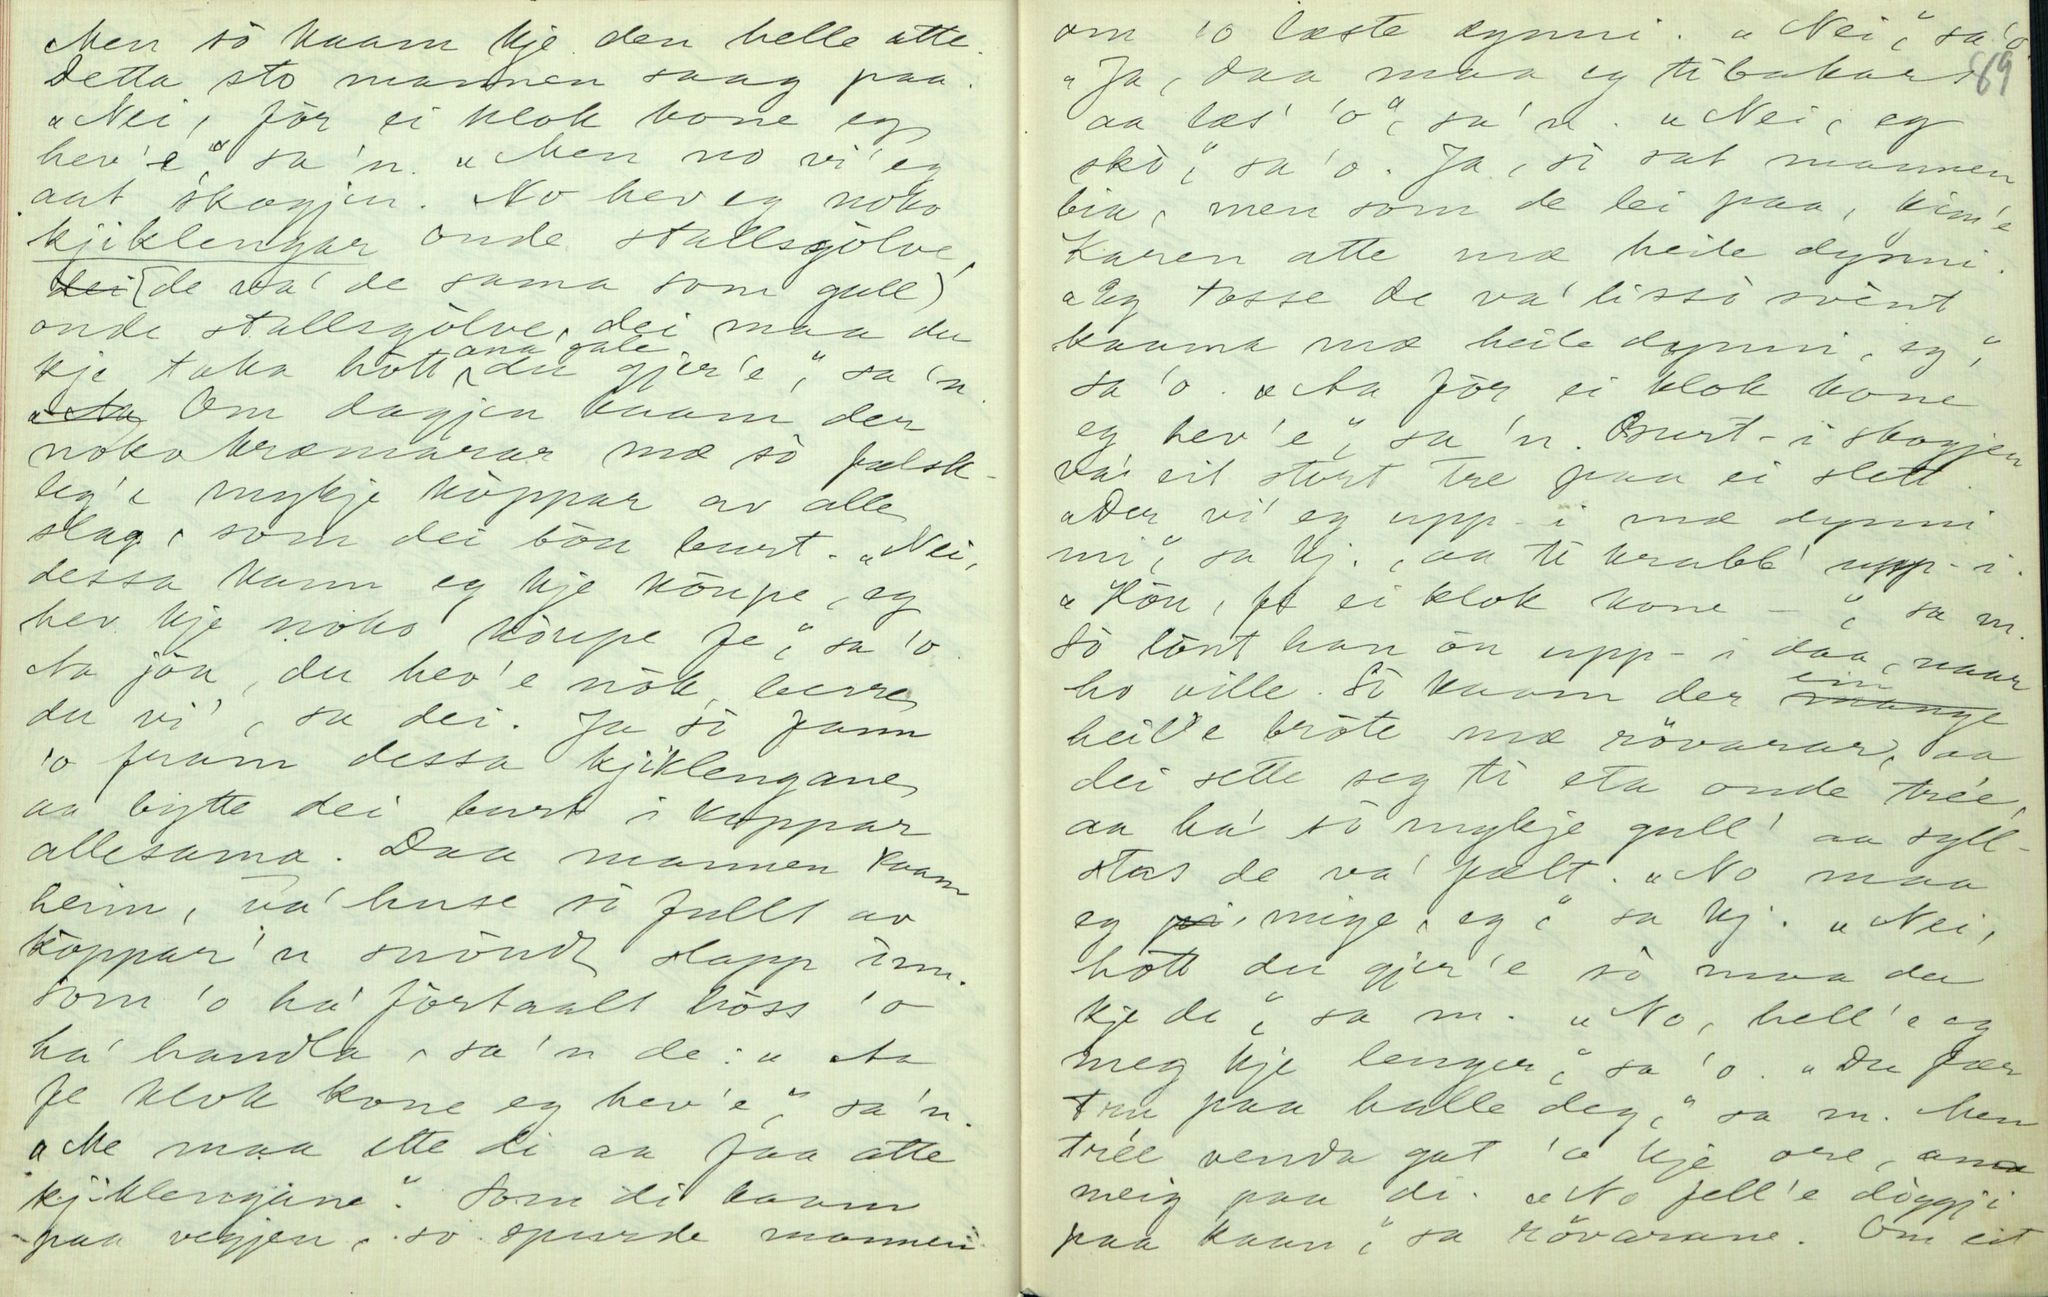 Men sò kaam kje den helle atte.
Detta sto mannen saag paa.
„Nei, før ei klok kone eg
hev'e," sa'n. „Men no vi' eg
aat skogjen. No hev eg noko
kjiklengar onde stallsgòlve,
dei (de va' de sama som gull)
onde stallsgòlve, dei maa du
kje taka hòtt ana gale du gjer'e," sa'n.
„Aa Om dagjen kaam der
noko kræmarar mæ sò fælsk-
leg'e mykje kòppar av alle
slag, som dei bòu burt. „Nei,
dessa kann eg kje kòupe, eg
hev kje noko kòupe fe," sa'o.
Aa jòa, du hev'e nòk, berre
du vi', sa dei. Ja sò fann
'o fram dessa kjiklengane
aa bytte dei burt i koppar
allesama. Daa mannen kaam
heim, va' huse sò fullt av
kòppar'n snòudt slapp inn.
Som 'o ha' førtaalt hòss 'o
ha' handla, sa'n de: „Aa
fe klok kone eg hev'e," sa'n.
„Me maa ette di aa faa atte
kjiklengane". Som di kaam
paa vegjen, so spurde mannen
om 'o læste dynni. „Nei," sa'o
69
„Ja, daa maa eg tibakars
aa læs' 'o", sa'n. „Nei, eg
skò," sa'o. Ja, sò sat mannen
bia, men som de lei paa, kim'e
Karen atte mæ heile dynni.
„Eg tosse de va' lissò svènt
kaama mæ heile dynni, eg",
sa'o. „Aa før ei klok kone
eg hev'e", sa'n. Burt-i skogjen
va' eit stort tre paa ei slett.
„Der vi' eg upp-i mæ dynni
mi", sa kj., aa ti krabb' upp-i.
„Hòu, fe ei klok kone –", sa m.
Sò lònt han òn upp-i daa, naar
ho ville. Sò kaam der mange ein
heile bròte mæ røvarar, aa
dei sette seg ti eta onde trèe,
aa ha' sò mykje gull' aa syll-
stas de va' fælt. „No maa
eg mige, eg," sa kj. „Nei,
hòtt du gjer'e sò maa du
kje de", sa m. „No, hell'e eg
meg kje lenger," sa'o. „Du fær
tru paa halle deg," sa m. Men
trèe venda gat 'o kje ore,
meig paa di. „No fell'e døggji
paa kaan," sa røvarane. Om eit